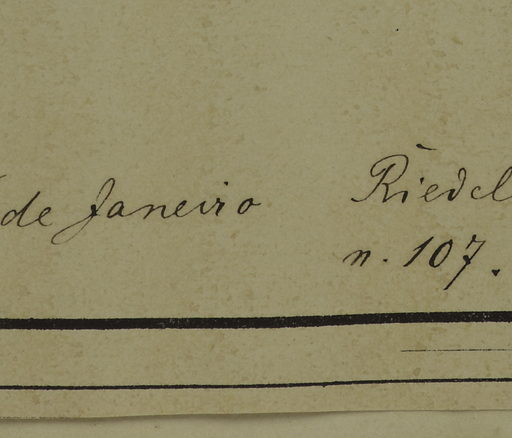 de Janeiro Riedel
n. 107.